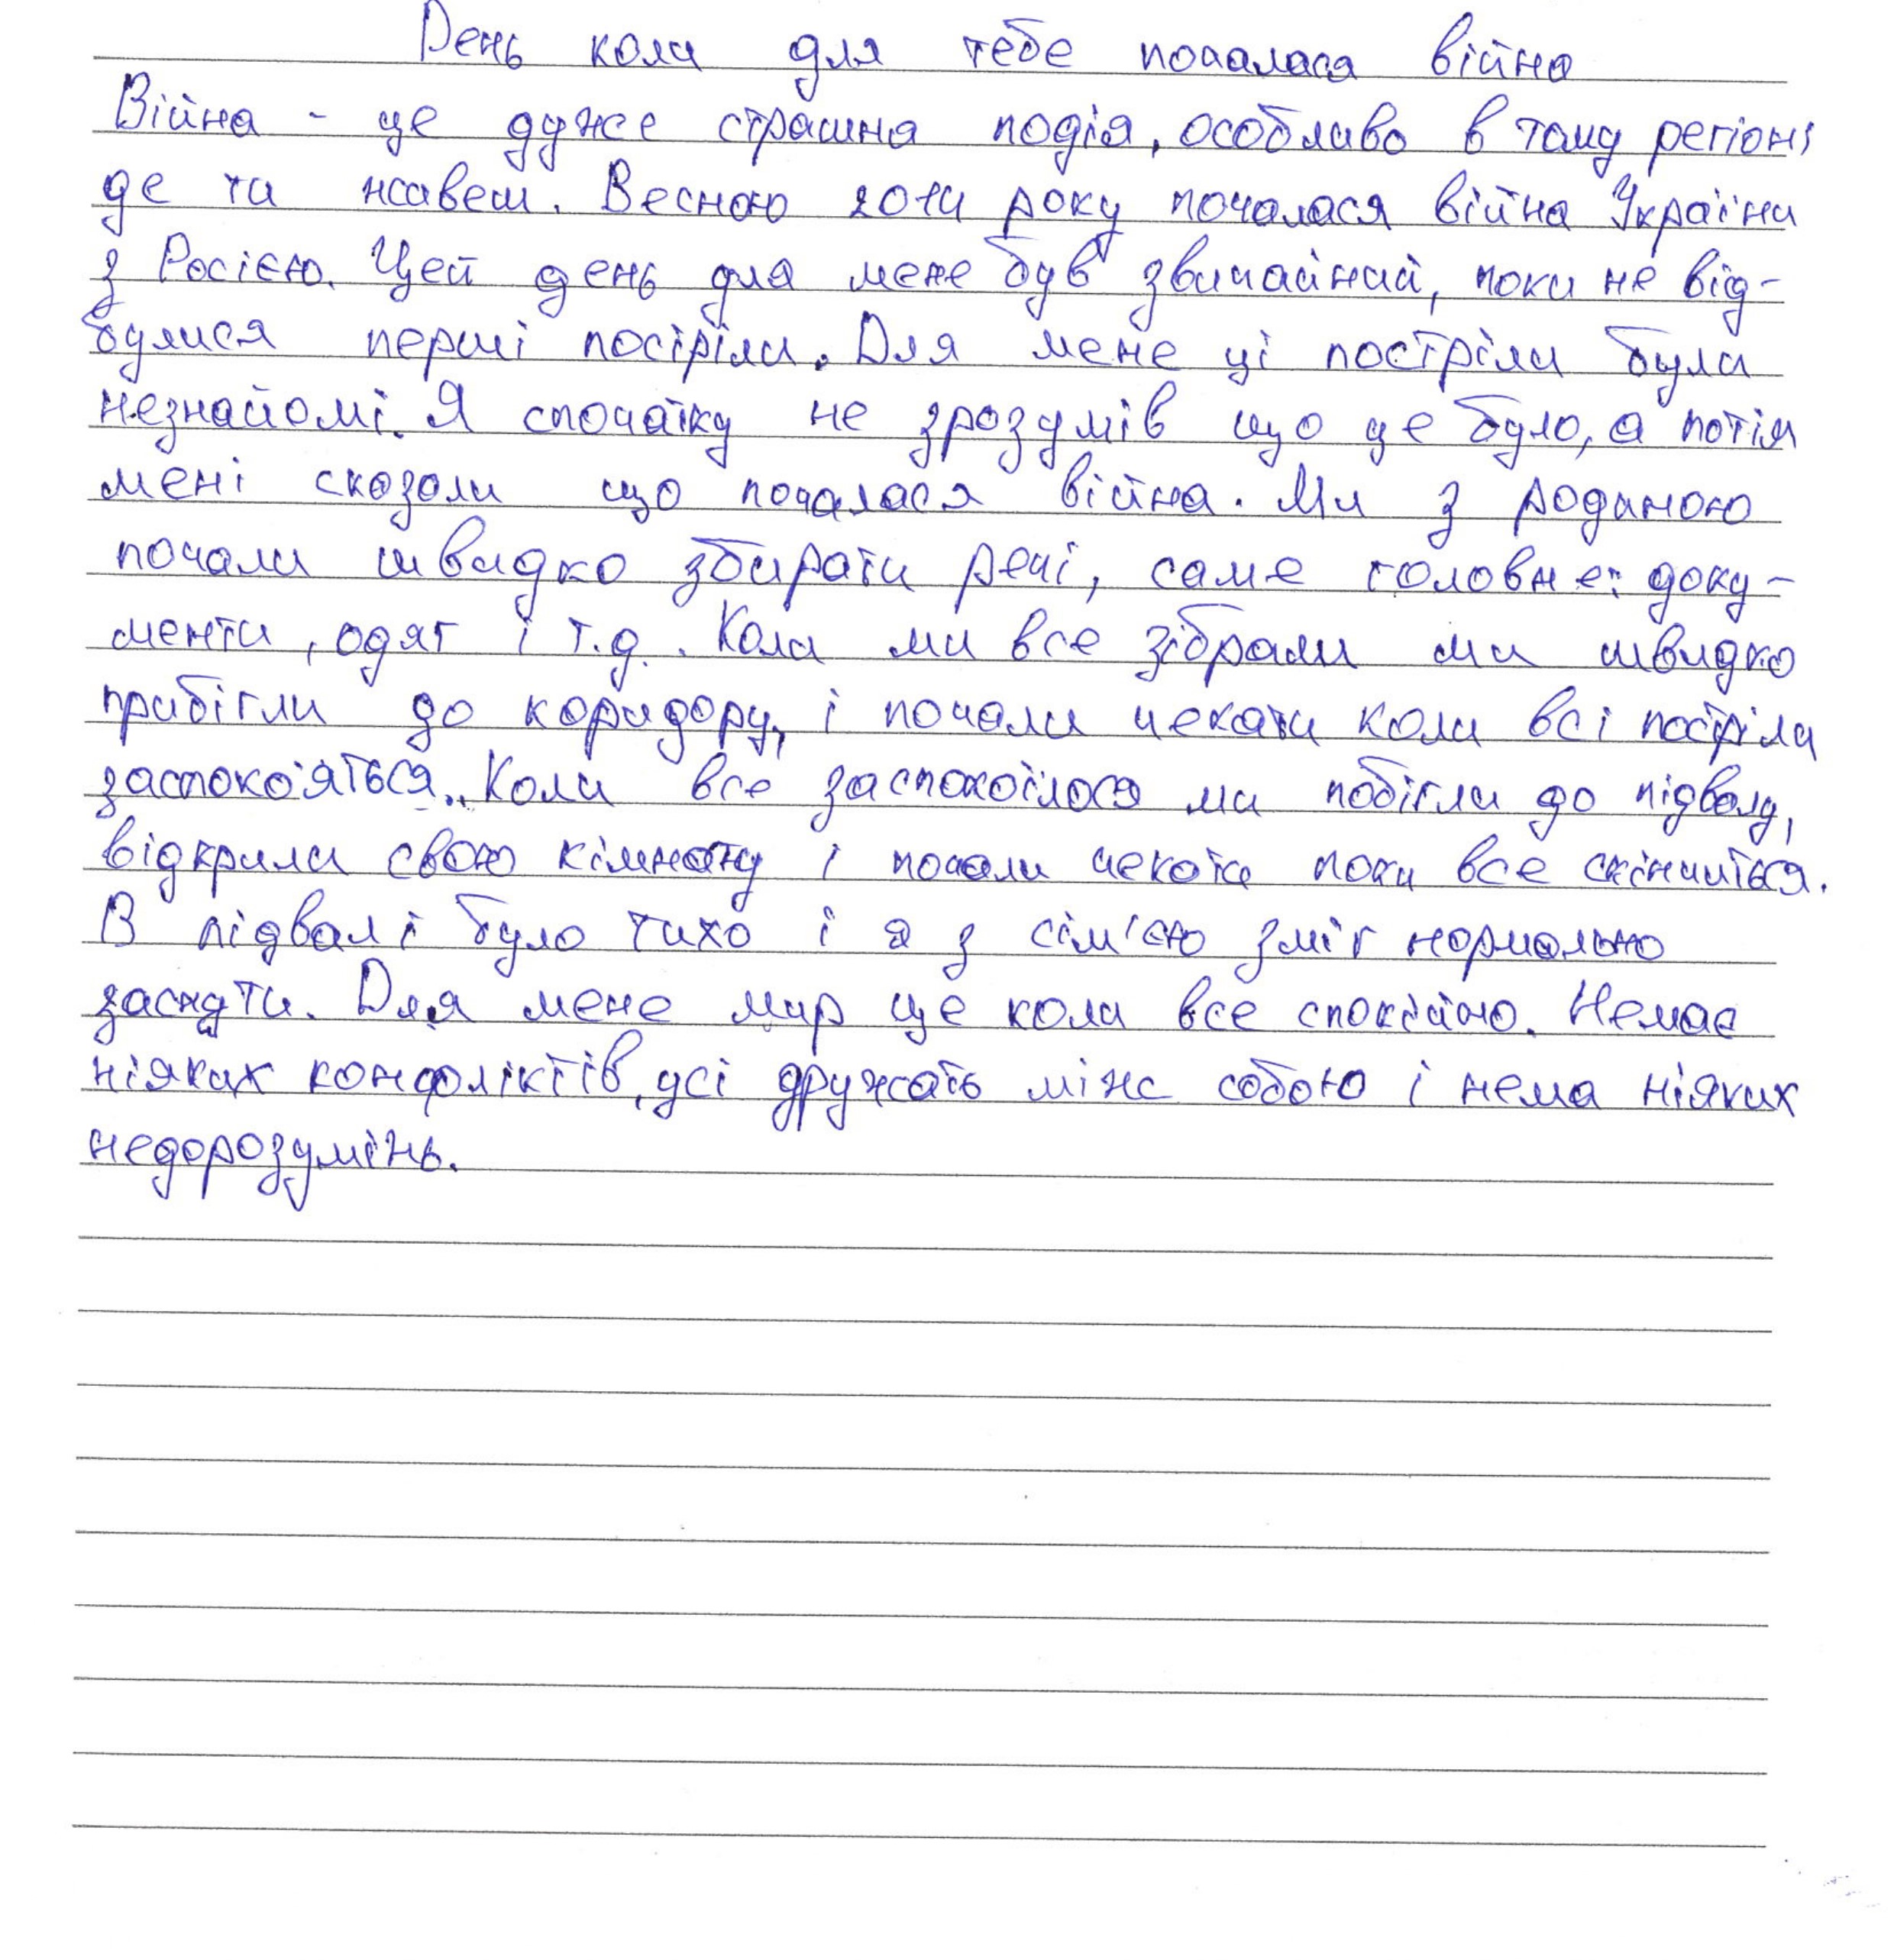 День коли для тебе почалася війна
Війна - це дуже страшна подія, особливо в тому регіоні
де ти живеш. Весною 2014 року почалася війна України
з Росією. Цей день для мене був звичайний, поки не від-
булися перші постріли. Для мене ці постріли були
незнайомі. Я спочатку не зрозумів що це було, а потім
мені сказали що почалася війна. Ми з родиною
почали швидко збирати речі, саме головне: доку-
менти, одяг і т.д. Коли ми все зібрали ми швидко
прибігли до коридору, і почали чекати коли всі постріли
заспоко'яться. Коли все заспокоїлося ми побігли до підвалу,
відкрили свою кімнату і почали чекати поки все скінчиться.
В підвалі було тихо і я з сім'єю зміг нормально
заснути. Для мене мир це коли все спокійно. Немає
ніяких конфліктів, усі дружать між собою і нема ніяких
недорозумінь.